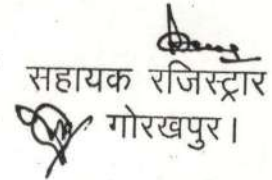 सहायक रजिस्ट्रार
गोरखपुर।